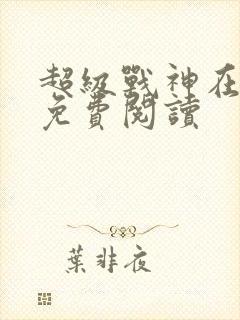 超級戰神在
免費閱讀
葉非夜